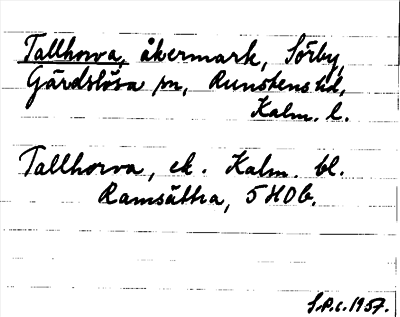 Tallhorva, åkermark, Sörby,
Gärdslösa sn, Runstens hd,
Kalm. l.
Tallhorva, ek. Kalm. bl.
Ramsättra, 5H0b.
S.P.c.1957.